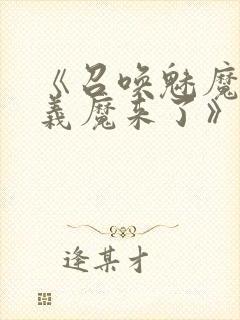 《召唤魅魔
義魔来了》
逢某才